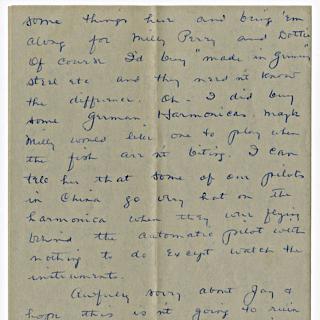 some things here and bring 'em
along for Milly Perry and Dottie
Of course I'd buy "made in Germany"
steel etc and they need'nt know
the difference. Oh - I did buy
some German Harmonicas. maybe
Milly would like one to play when
the fish are'nt biting. I can
tell her that some of our pilots
in China go very hot on the
harmonica when they were flying
behind the automatic pilot with
nothing to do except watch the
instruments.
Awfully sorry about Jay &
hope this is nt going to ruin